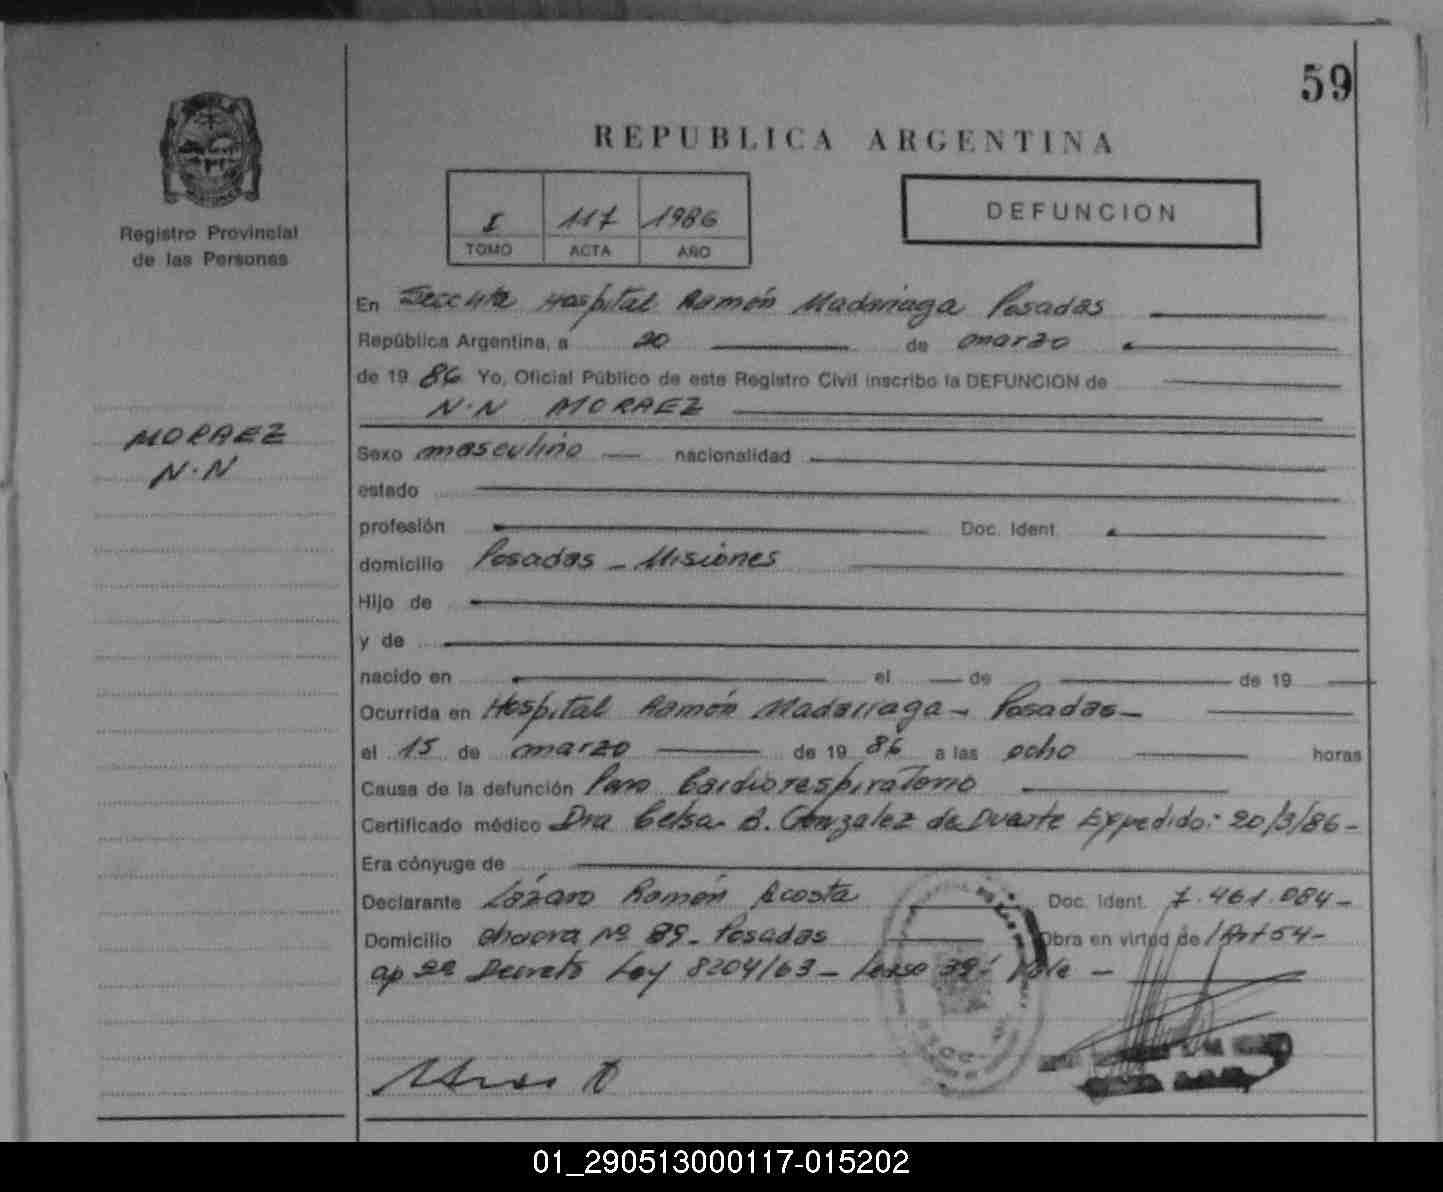 59
REPUBLICA ARGENTINA
Registro Provincial
de las Personas
I 117 1986
TOMO ACTA AÑO
DEFUNCION
En Hospital Ramón Madariaga Posadas
República Argentina, a 20 de marzo
de 1986 Yo, Oficial Público de este Registro Civil inscribo la DEFUNCION de
N.N MORAEZ
MORAEZ
N.N
Sexo masculino nacionalidad
estado
profesión Doc. Ident.
domicilio Posadas - Misiones
Hijo de
y de
nacido en el de de 19
Ocurrida en Hospital Ramón Madariaga - Posadas -
el 15 de marzo de 1986 a las ocho horas
Causa de la defunción Paro Cardiorespiratorio
Certificado médico Dra Celsa B. Gonzalez de Duarte Expedido: 20/3/86 -
Era cónyuge de
Declarante Lázaro Ramón Acosta Doc. Ident. 7.461.084 -
Domicilio Nº 89 - Posadas Obra en virtud de Art 54 -
ap 2º Decreto Ley 8204/63 - Vale -
01_290513000117-015202